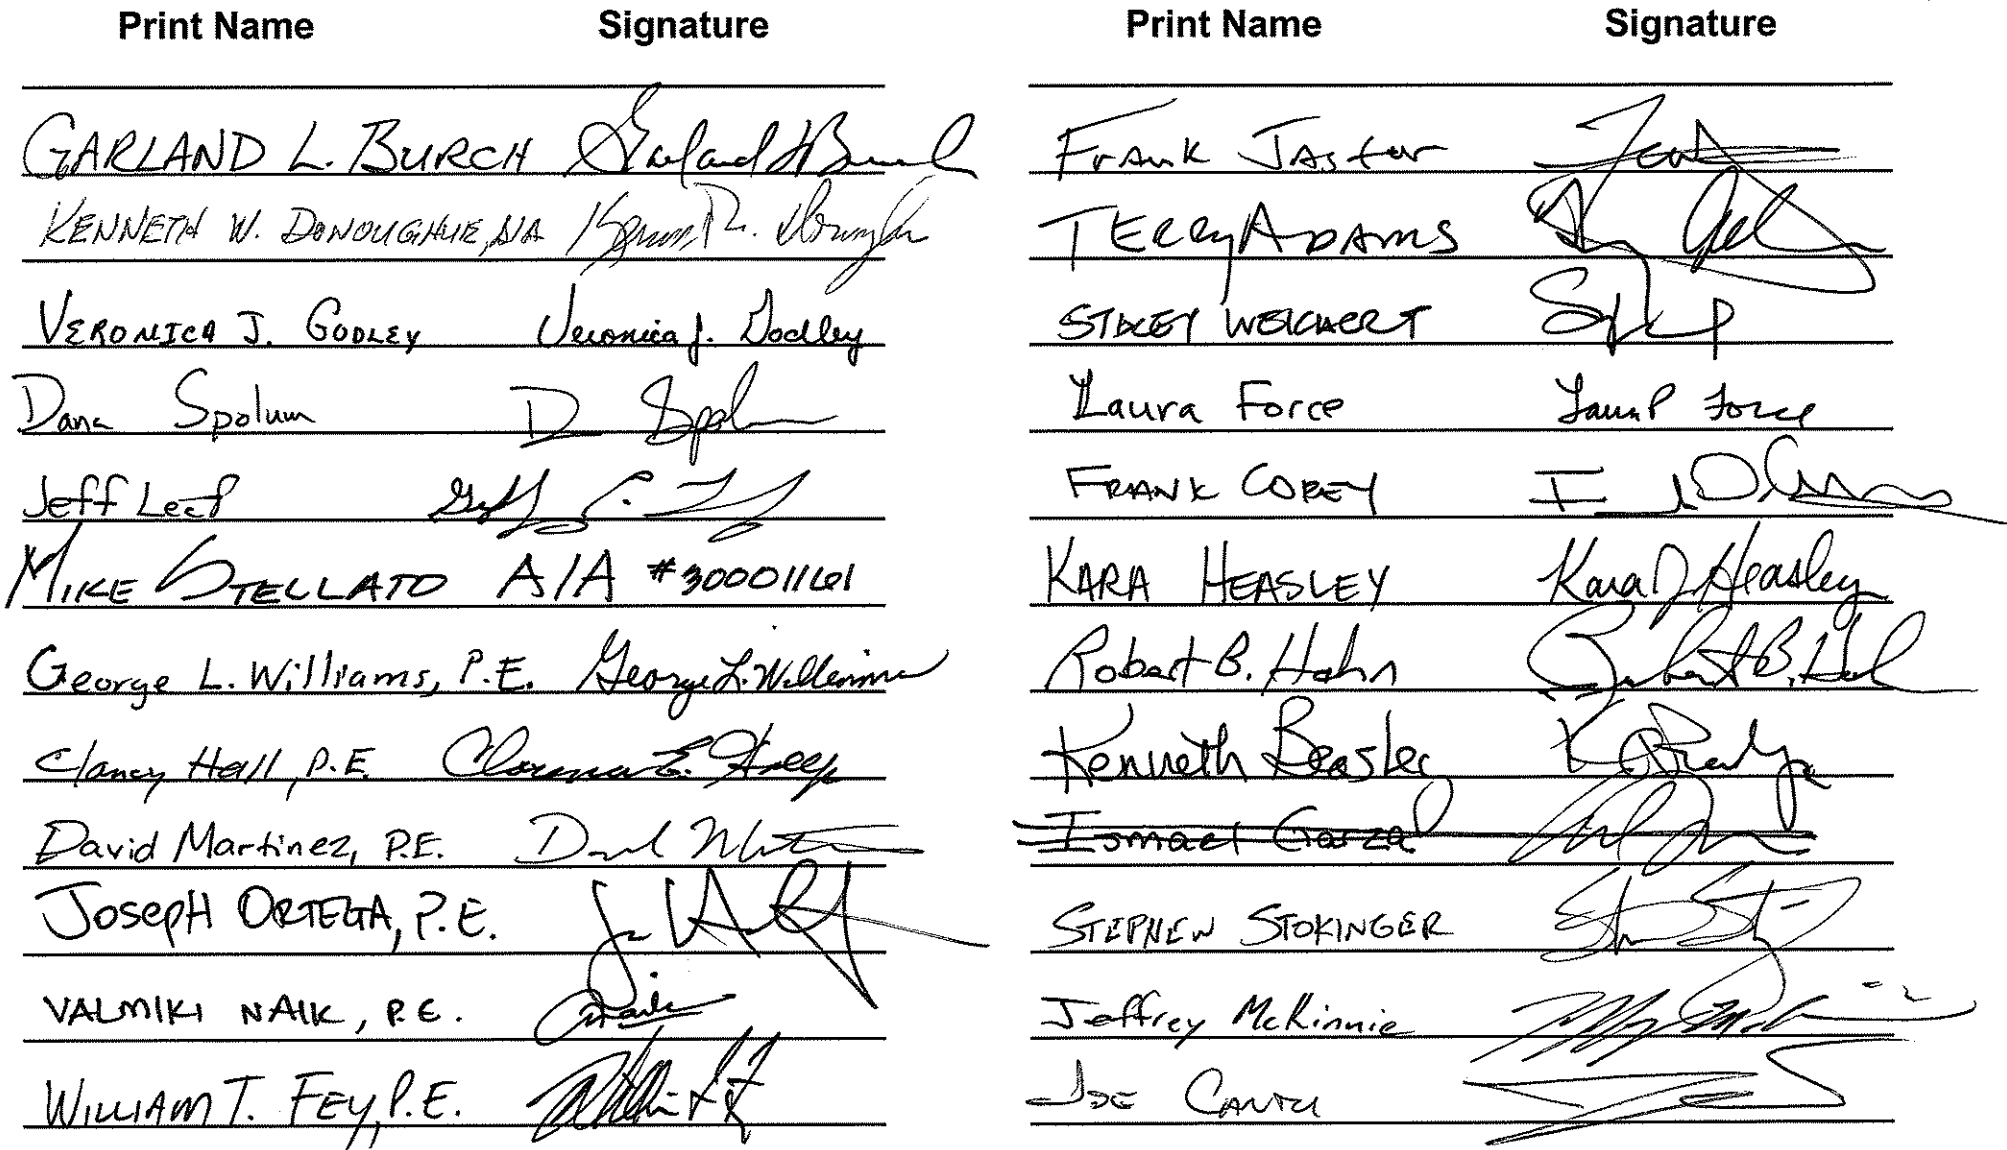 Print Name Signature
GARLAND L. BURCH Garland L Burch
KENNETH W. DONOUGHUE, AIA
VERONICA J. GODLEY Veronica J. Godley
Dana Spolum D Spolum
Jeff Leaf
MIKE STELLATO AIA #30001161
George L. Williams, P.E. George L. Williams
Clancy Hall, P.E.
David Martinez, P.E.
JOSEPH ORTEGA, P.E.
VALMIKI NAIK, P.E. Naik
WILLIAM T. FEY, P.E.
Print Name Signature
Frank Jaster
TERRY ADAMS
STACEY WEICHERT
Laura Force Laura P Force
FRANK COREY
KARA HEASLEY Kara J Heasley
Robert B. Hahn Robert B. Hah
Kenneth Beasley
Ismael Garza
STEPHEN STOKINGER
Jeffrey McKinnie
JOE CANTU